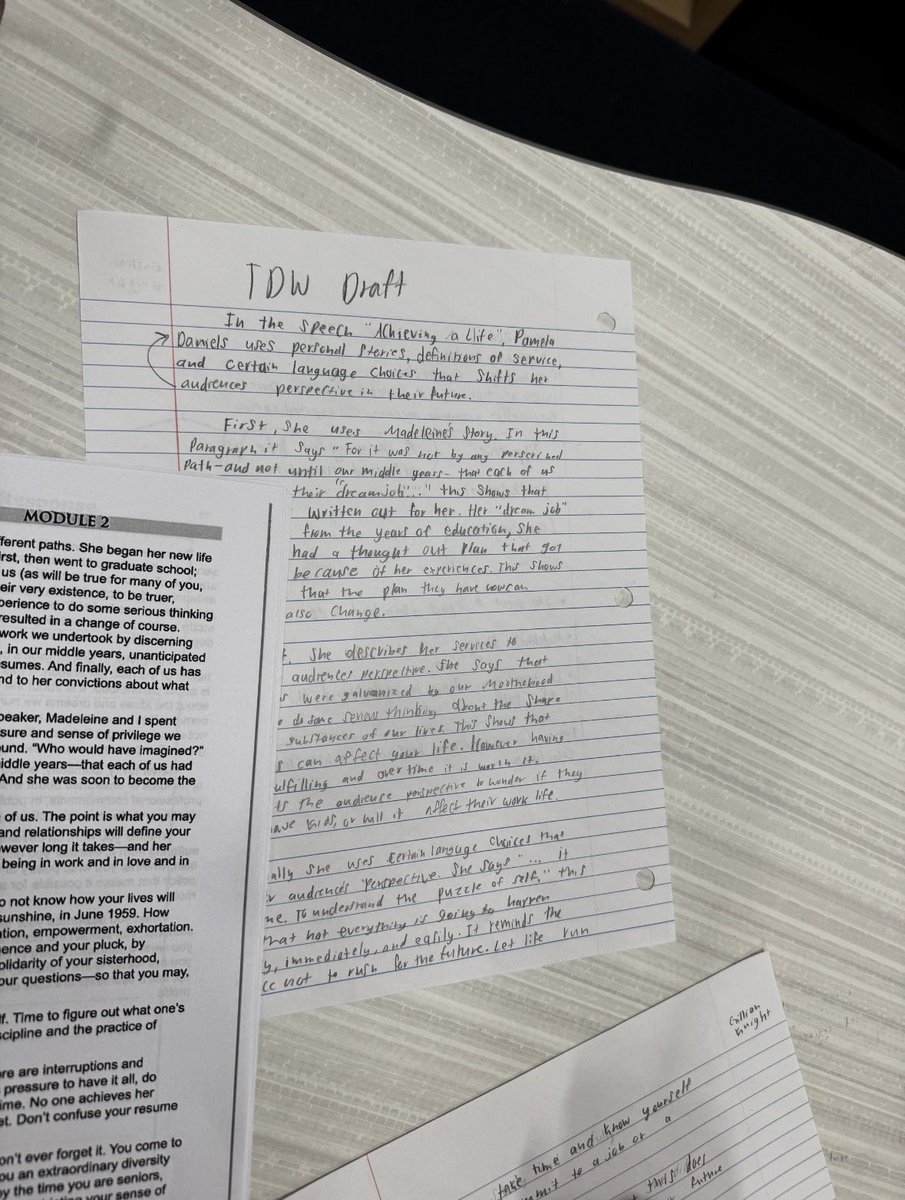 TDW Draft
In the speech "Achieving a Llife", Pamela
Daniels uses personal stories, definitions of service,
and certain language choices that shifts her
audiences perspective in their future.
First, she uses Madeleine's story. In this
Paragraph it says "For it was not by any perscribed
Path-and not until our middle years- that each of us
their "dream job"..." this shows that
written out for her. Her "dream job"
from the years of education, she
had a thought out plan that got
because of her experiences. This shows
that the plan they have now can
also change.
She describes her services to
audiences perspective. She says that
were galvanized by our Motherhood
do some serious thinking about the
substances of our lives. This shows that
can affect your life. However having
ulfilling and over time it is worth it.
ts the audience perspective to wonder if they
have kids, or will it affect their work life.
ally she uses certain language choices that
r audiences perspective. She says "... it
me. To understand the puzzle of self." this
that not everything is going to happen
y, immediately, and easily. It reminds the
ce not to rush for the future. Let life run
MODULE 2
fferent paths. She began her new life
irst, then went to graduate school;
us (as will be true for many of you,
eir very existence, to be truer,
perience to do some serious thinking
resulted in a change of course.
work we undertook by discerning
, in our middle years, unanticipated
sumes. And finally, each of us has
nd to her convictions about what
peaker, Madeleine and I spent
sure and sense of privilege we
ound. "Who would have imagined?"
iddle years—that each of us had
And she was soon to become the
of us. The point is what you may
and relationships will define your
owever long it takes—and her
being in work and in love and in
o not know how your lives will
sunshine, in June 1959. How
ation, empowerment, exhortation.
ence and your pluck, by
olidarity of your sisterhood,
our questions—so that you may,
lf. Time to figure out what one's
scipline and the practice of
ere are interruptions and
pressure to have it all, do
ime. No one achieves her
et. Don't confuse your resume
on't ever forget it. You come to
ou an extraordinary diversity
by the time you are seniors,
your sense of
Gillian
Knight
take time and know yourself
mmit to a job or a
this does
future